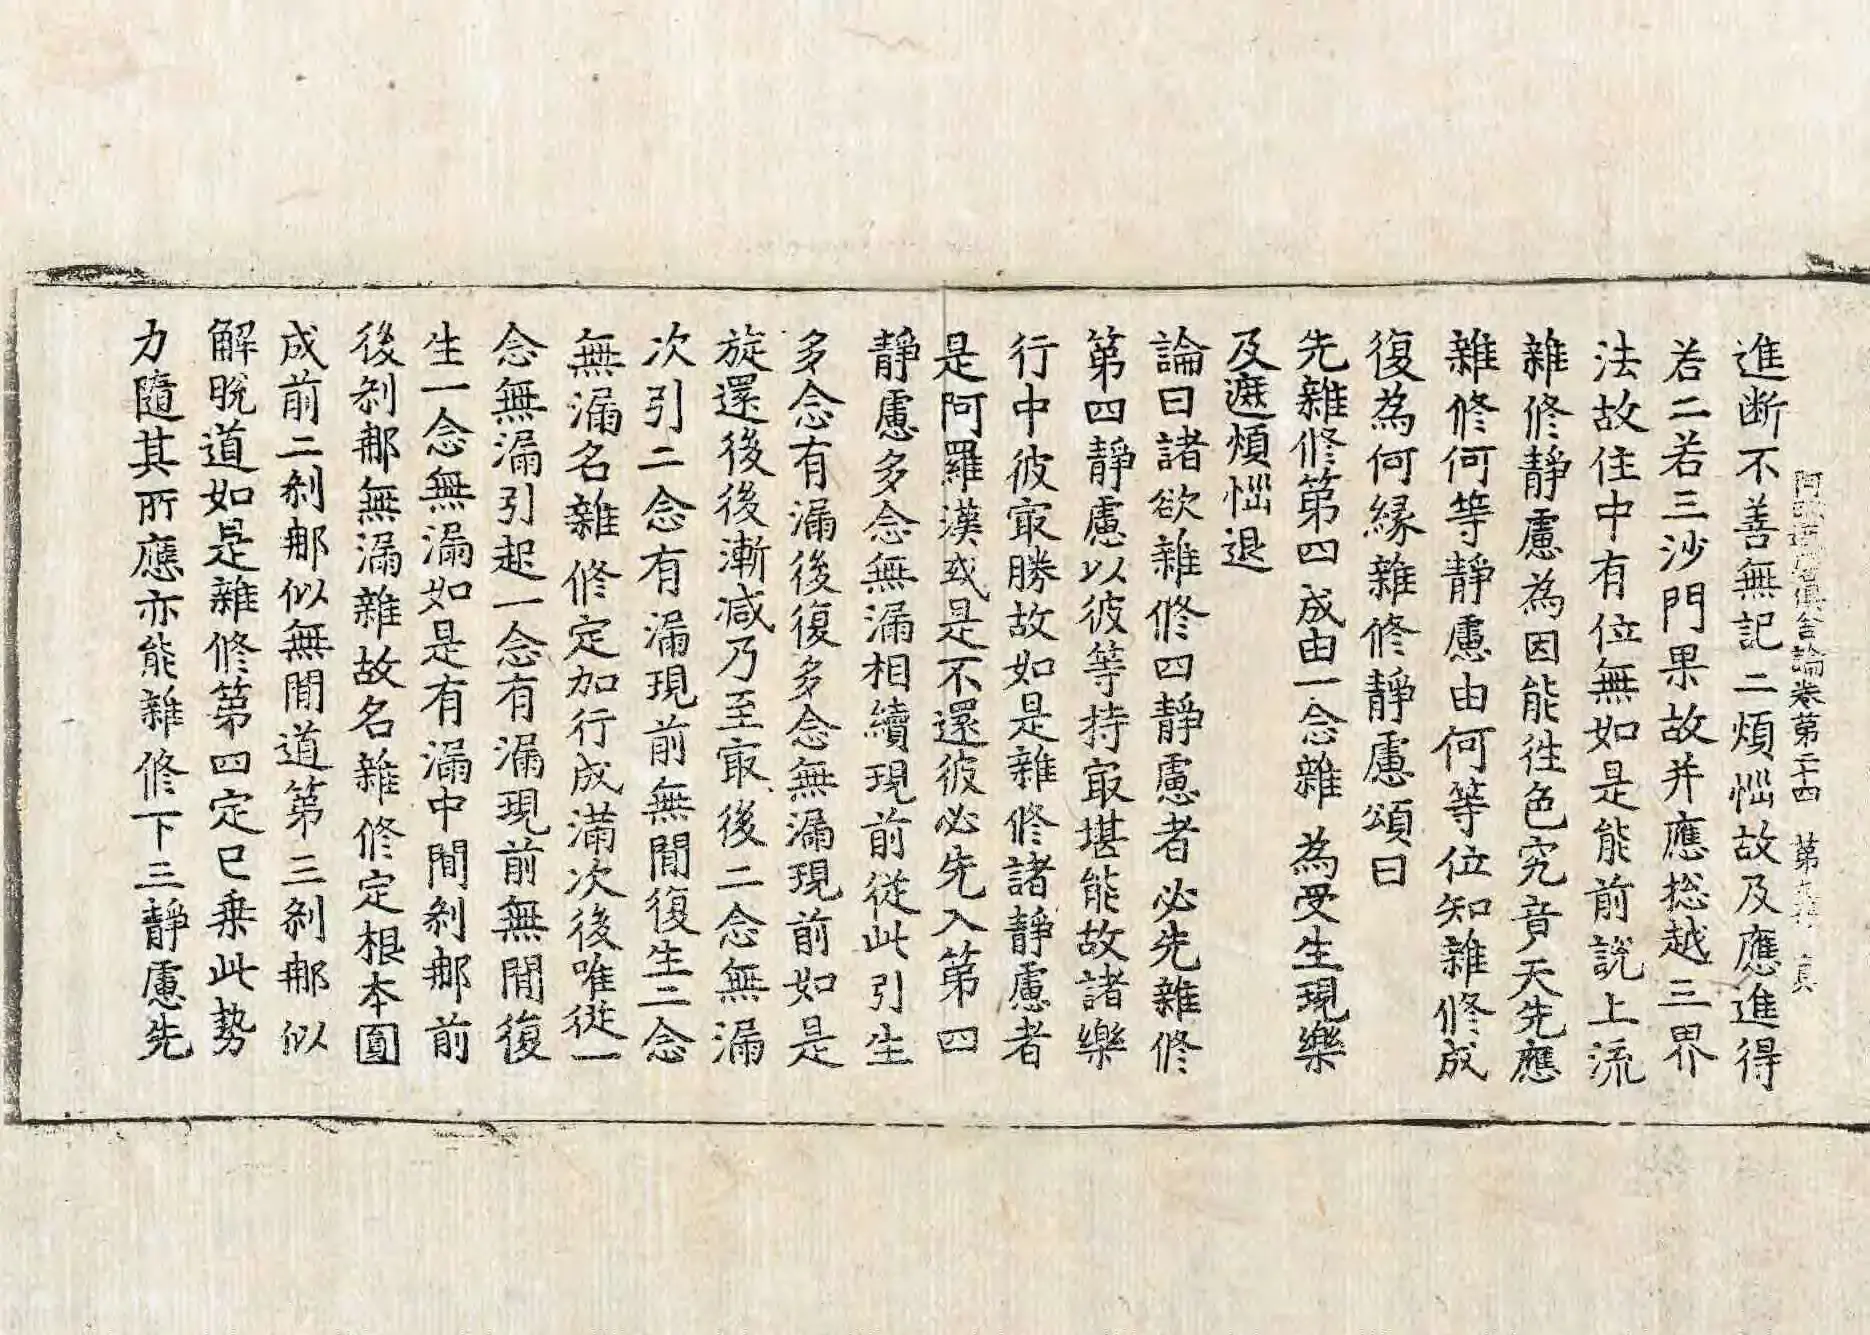 阿毗達磨俱舍論卷第二十四 第 張 真
進断不善無記二煩惱故及應進得
若二若三沙門果故并應捴越三界
法故住中有位無如是能前說上流
雜修靜慮為因能往色究竟天先應
雜修何等靜慮由何等位知雜修成
復為何緣雜修靜慮頌曰
先雜修第四 成由一念雜 為受生現樂
及遮煩惱退
論曰諸欲雜修四靜慮者必先雜修
第四靜慮以彼等持㝡堪能故諸樂
行中彼㝡勝故如是雜修諸靜慮者
是阿羅漢或是不還彼必先入第四
靜慮多念無漏相續現前從此引生
多念有漏後復多念無漏現前如是
旋還後後漸减乃至㝡後二念無漏
次引二念有漏現前無閒復生二念
無漏名雜修定加行成滿次後唯從一
念無漏引起一念有漏現前無閒復
生一念無漏如是有漏中閒剎那前
後剎那無漏雜故名雜修定根本圓
成前二剎那似無閒道第三剎那似
解脫道如是雜修第四定已乘此勢
力隨其所應亦能雜修下三靜慮先